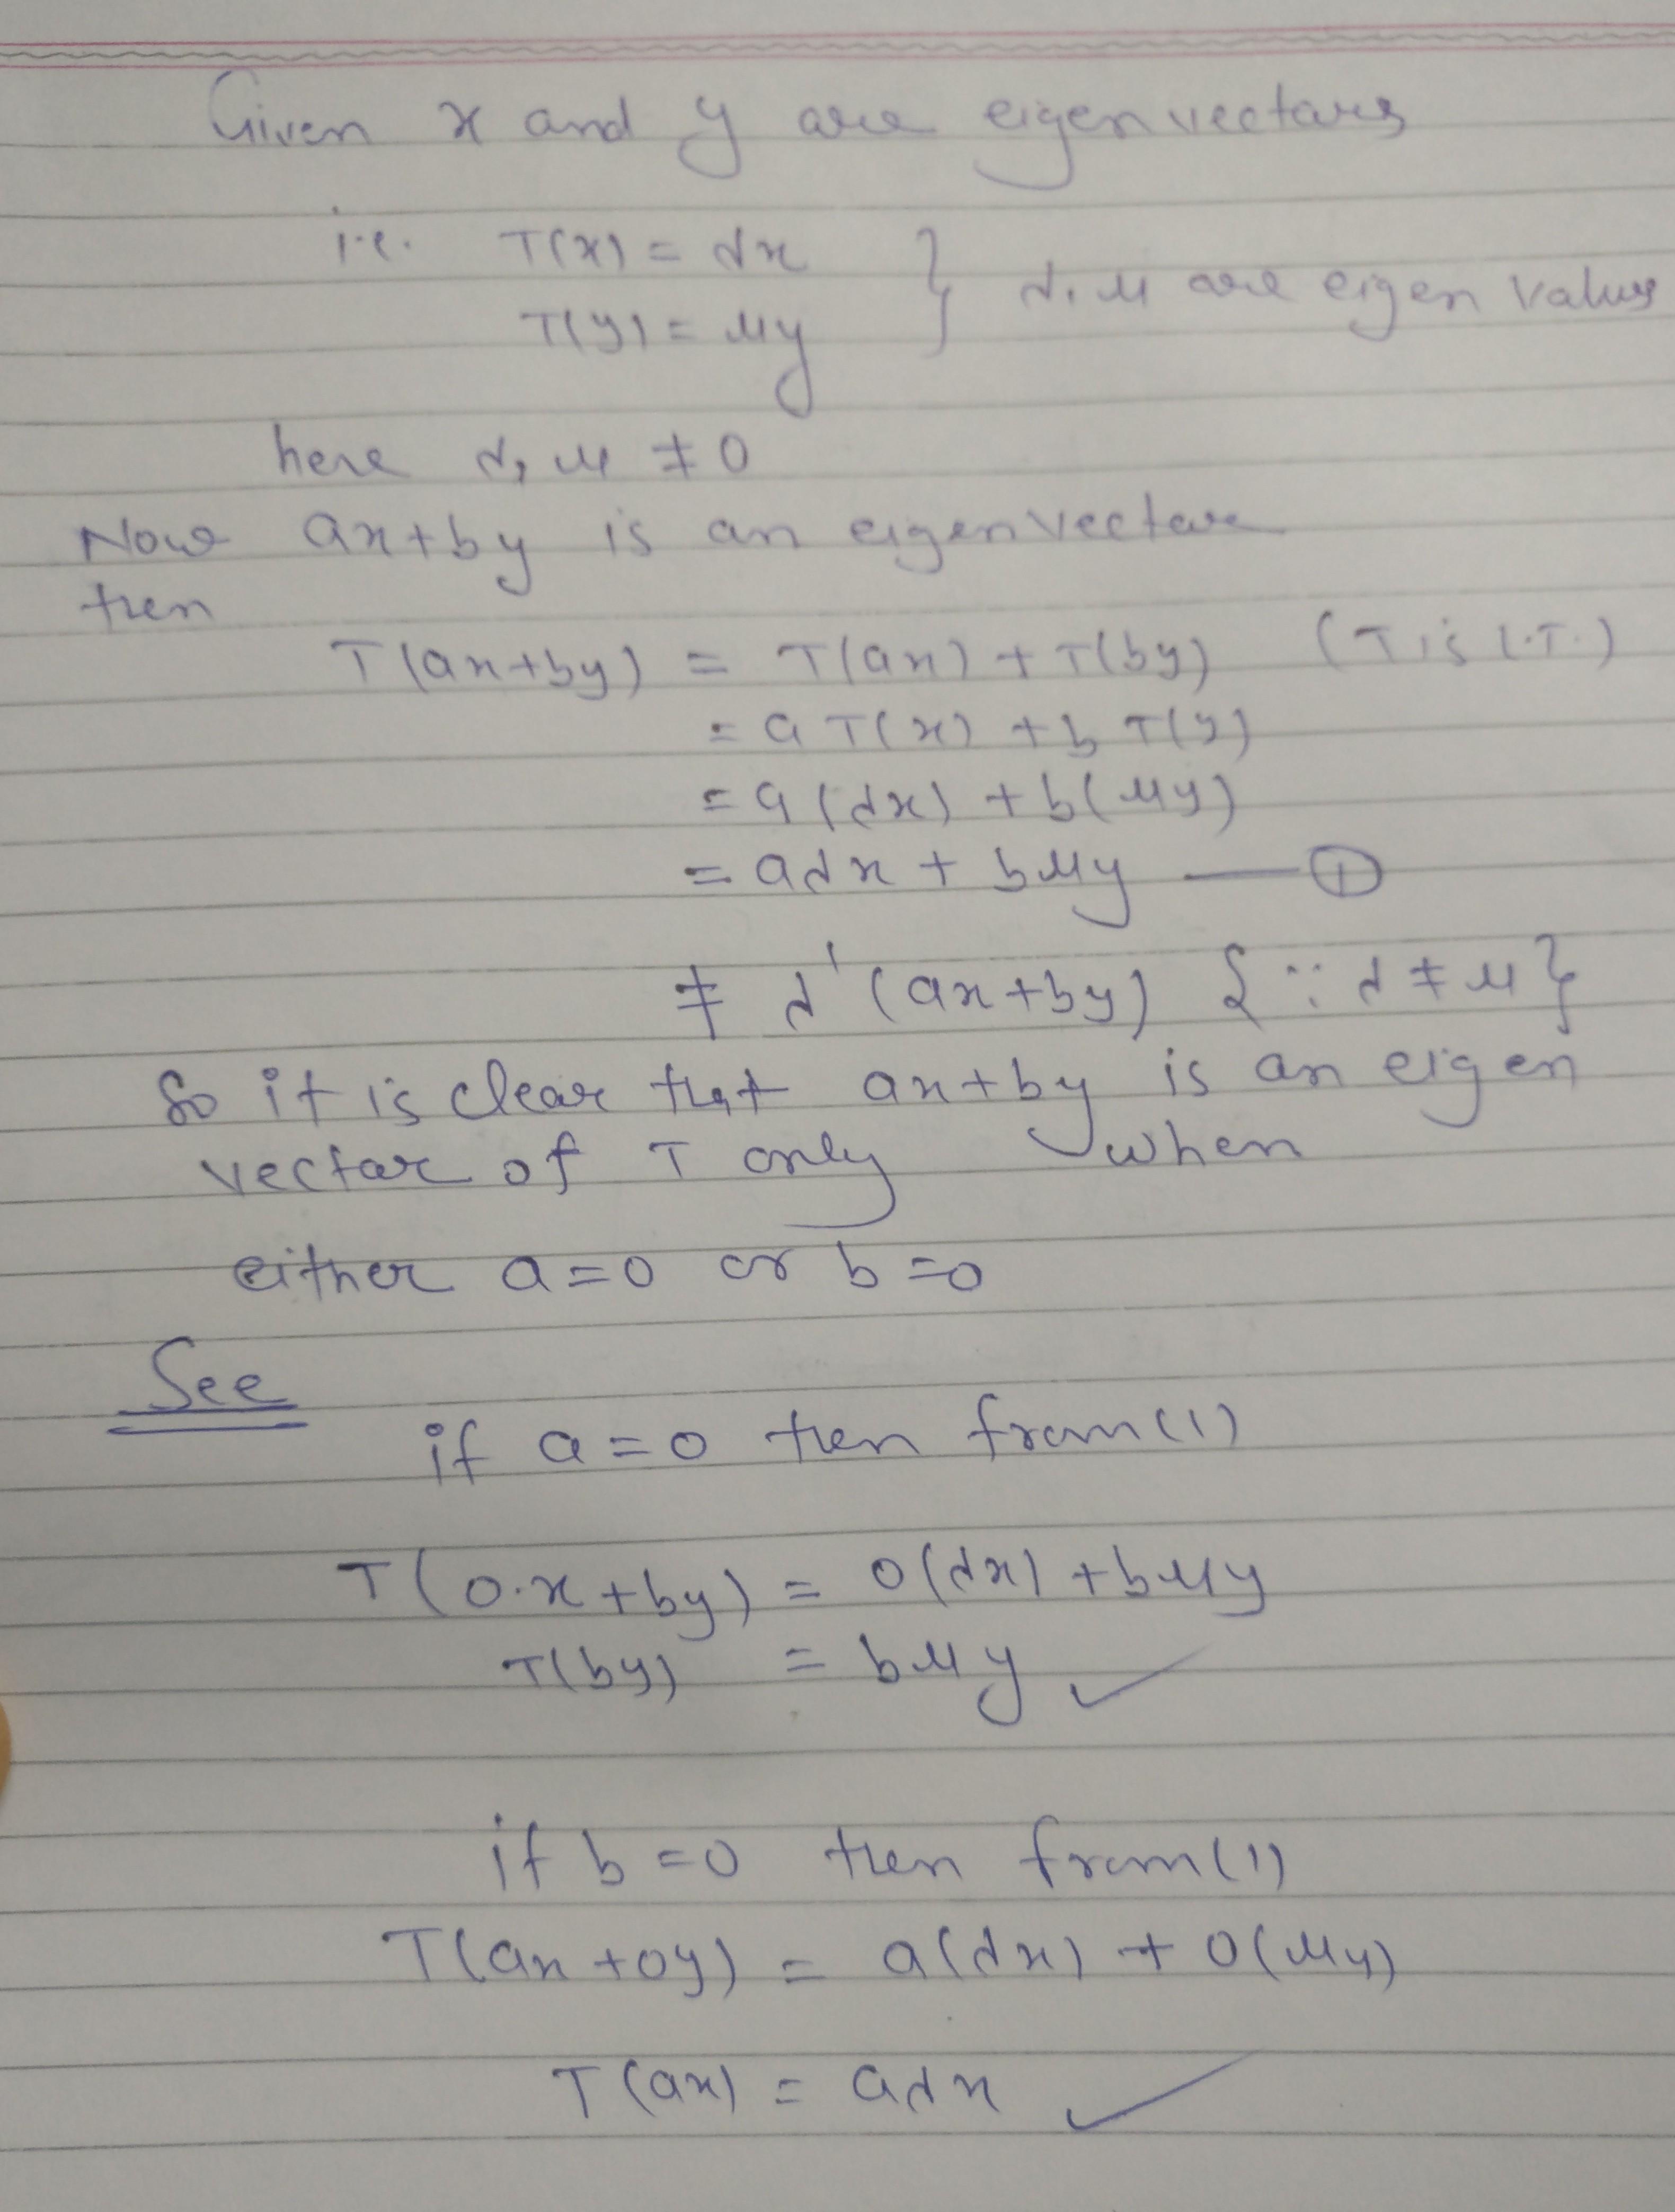 Given x and y are eigen vectars
i.e. T(x) = λx
T(y) = μy } λ, μ are eigen values
here λ, μ ≠ 0
Now ax+by is an eigen vectar
then
T(ax+by) = T(ax) + T(by) (T is L.T.)
= a T(x) + b T(y)
= a(λx) + b(μy)
= aλx + bμy — ①
≠ λ'(ax+by) {∵ λ ≠ μ}
So it is clear that ax+by is an eigen
vectar of T only when
either a=0 or b=0
See
if a=0 then from (1)
T(0.x+by) = 0(λx) + bμy
T(by) = bμy ✓
if b=0 then from (1)
T(ax+0y) = a(λx) + 0(μy)
T(ax) = aλx ✓